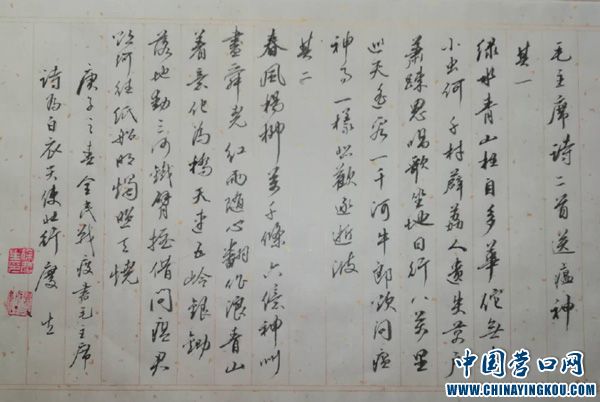 毛主席诗二首送瘟神
其一
绿水青山枉自多華佗無奈
小虫何千村薜荔人遗矢万户
萧疏鬼唱歌坐地日行八万里
巡天遥看一千河牛郎欲问瘟
神事一样悲歡逐逝波
其二
春风杨柳万千條六億神州
盡舜尧红雨随心翻作浪青山
着意化为橋天连五岭银锄
落地动三河铁臂摇借问瘟君
欲何往纸船明烛照天烧
庚子之春全民战疫书毛主席
诗为白衣天使壮行
中国营口网
WWW.CHINAYINGKOU.COM